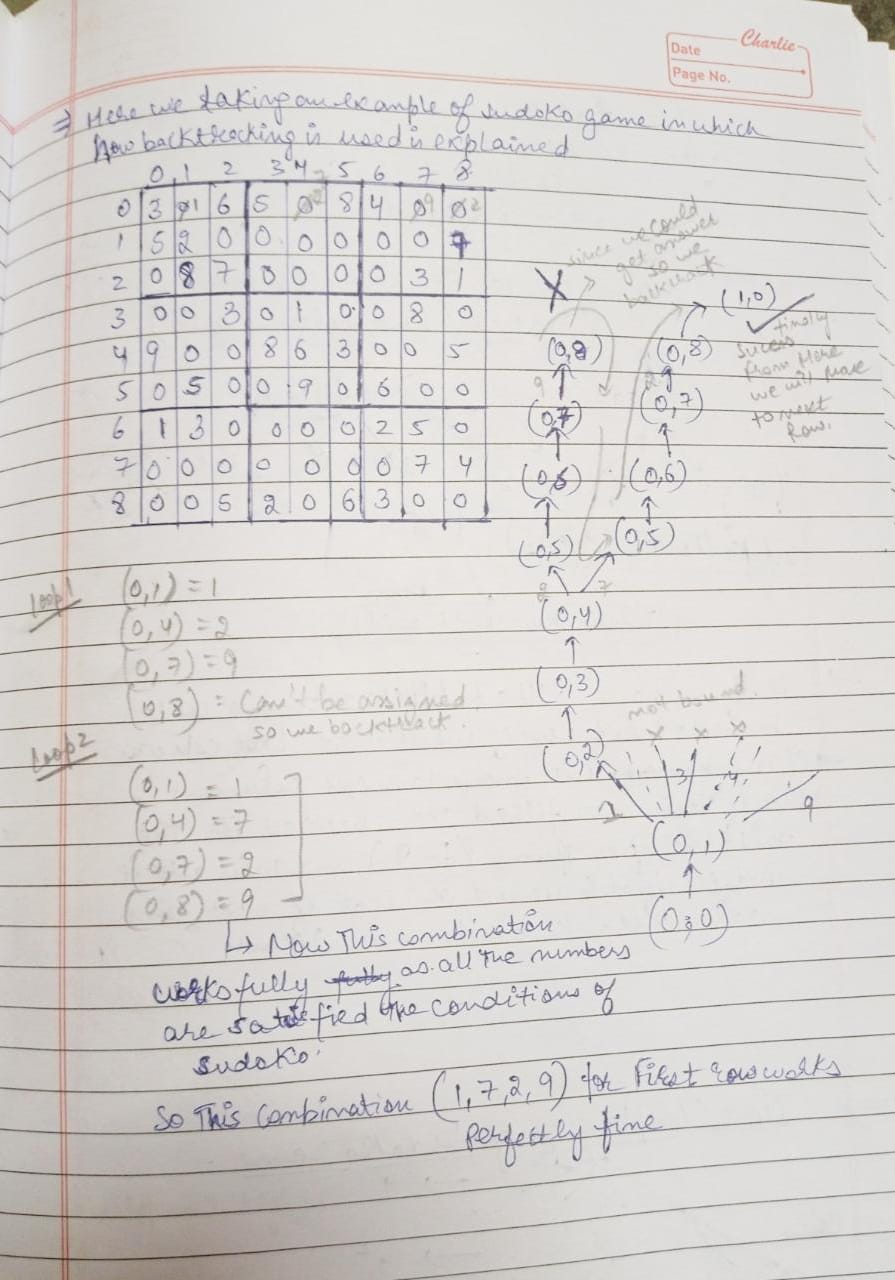 Charlie
Date
Page No.
⇒ Here we taking an example of sudoko game in which
how backtracking is used is explained
0 1 2 3 4 5 6 7 8
0 3 1 6 5 0 8 4 9 2
1 5 2 0 0 0 0 0 0 7
2 0 8 7 0 0 0 0 3 1
3 0 0 3 0 1 0 0 8 0
4 9 0 0 8 6 3 0 0 5
5 0 5 0 0 9 0 6 0 0
6 1 3 0 0 0 0 2 5 0
7 0 0 0 0 0 0 0 7 4
8 0 0 5 2 0 6 3 0 0
since we could
get answer
so we
backtrack
X
(1,0)
finally
Sucess
from Here
we will move
to next
Row.
(0,8) (0,8)
9 2
(0,7) (0,7)
(0,6) (0,6)
(0,5) (0,5)
2 7
(0,4)
(0,3)
not bound.
(0,2) x x x
1 3 4 9
(0,1)
(0,0)
Loop1
(0,1) = 1
(0,4) = 2
(0,7) = 9
(0,8) = Can't be assigned
so we backtrack.
Loop2
(0,1) = 1
(0,4) = 7
(0,7) = 2
(0,8) = 9
↳ Now This combination
works fully as all the numbers
are satisfied the conditions of
sudoko.
So This Combination (1,7,2,9) for First row works
perfectly fine